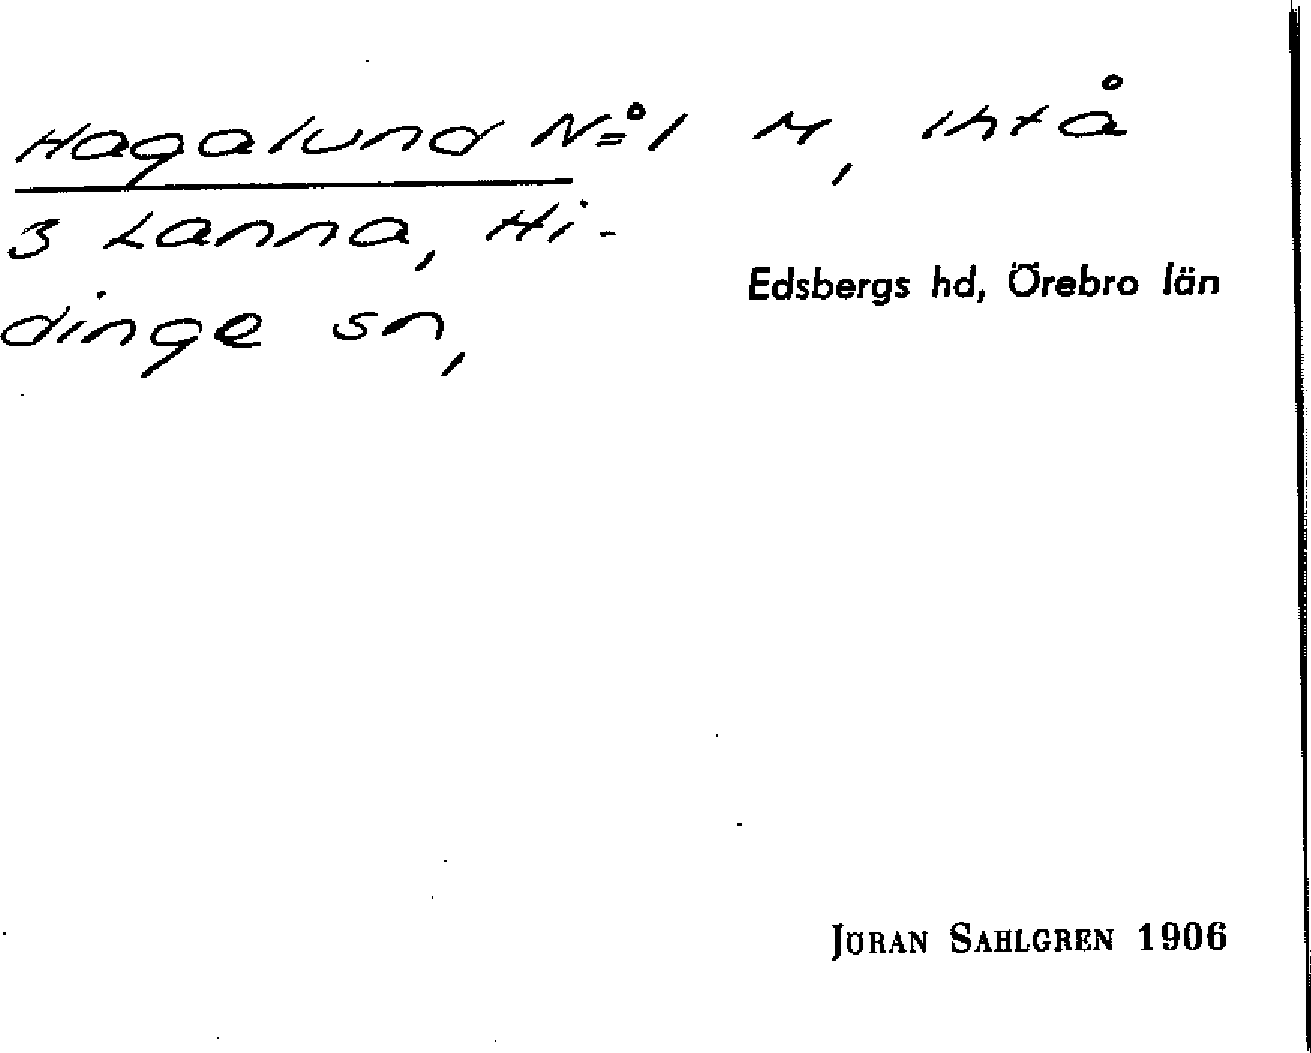 Hagalund No 1 M, ihtå
3 Lanna, Hi-
dinge sn,
Edsbergs hd, Örebro län
JÖRAN SAHLGREN 1906